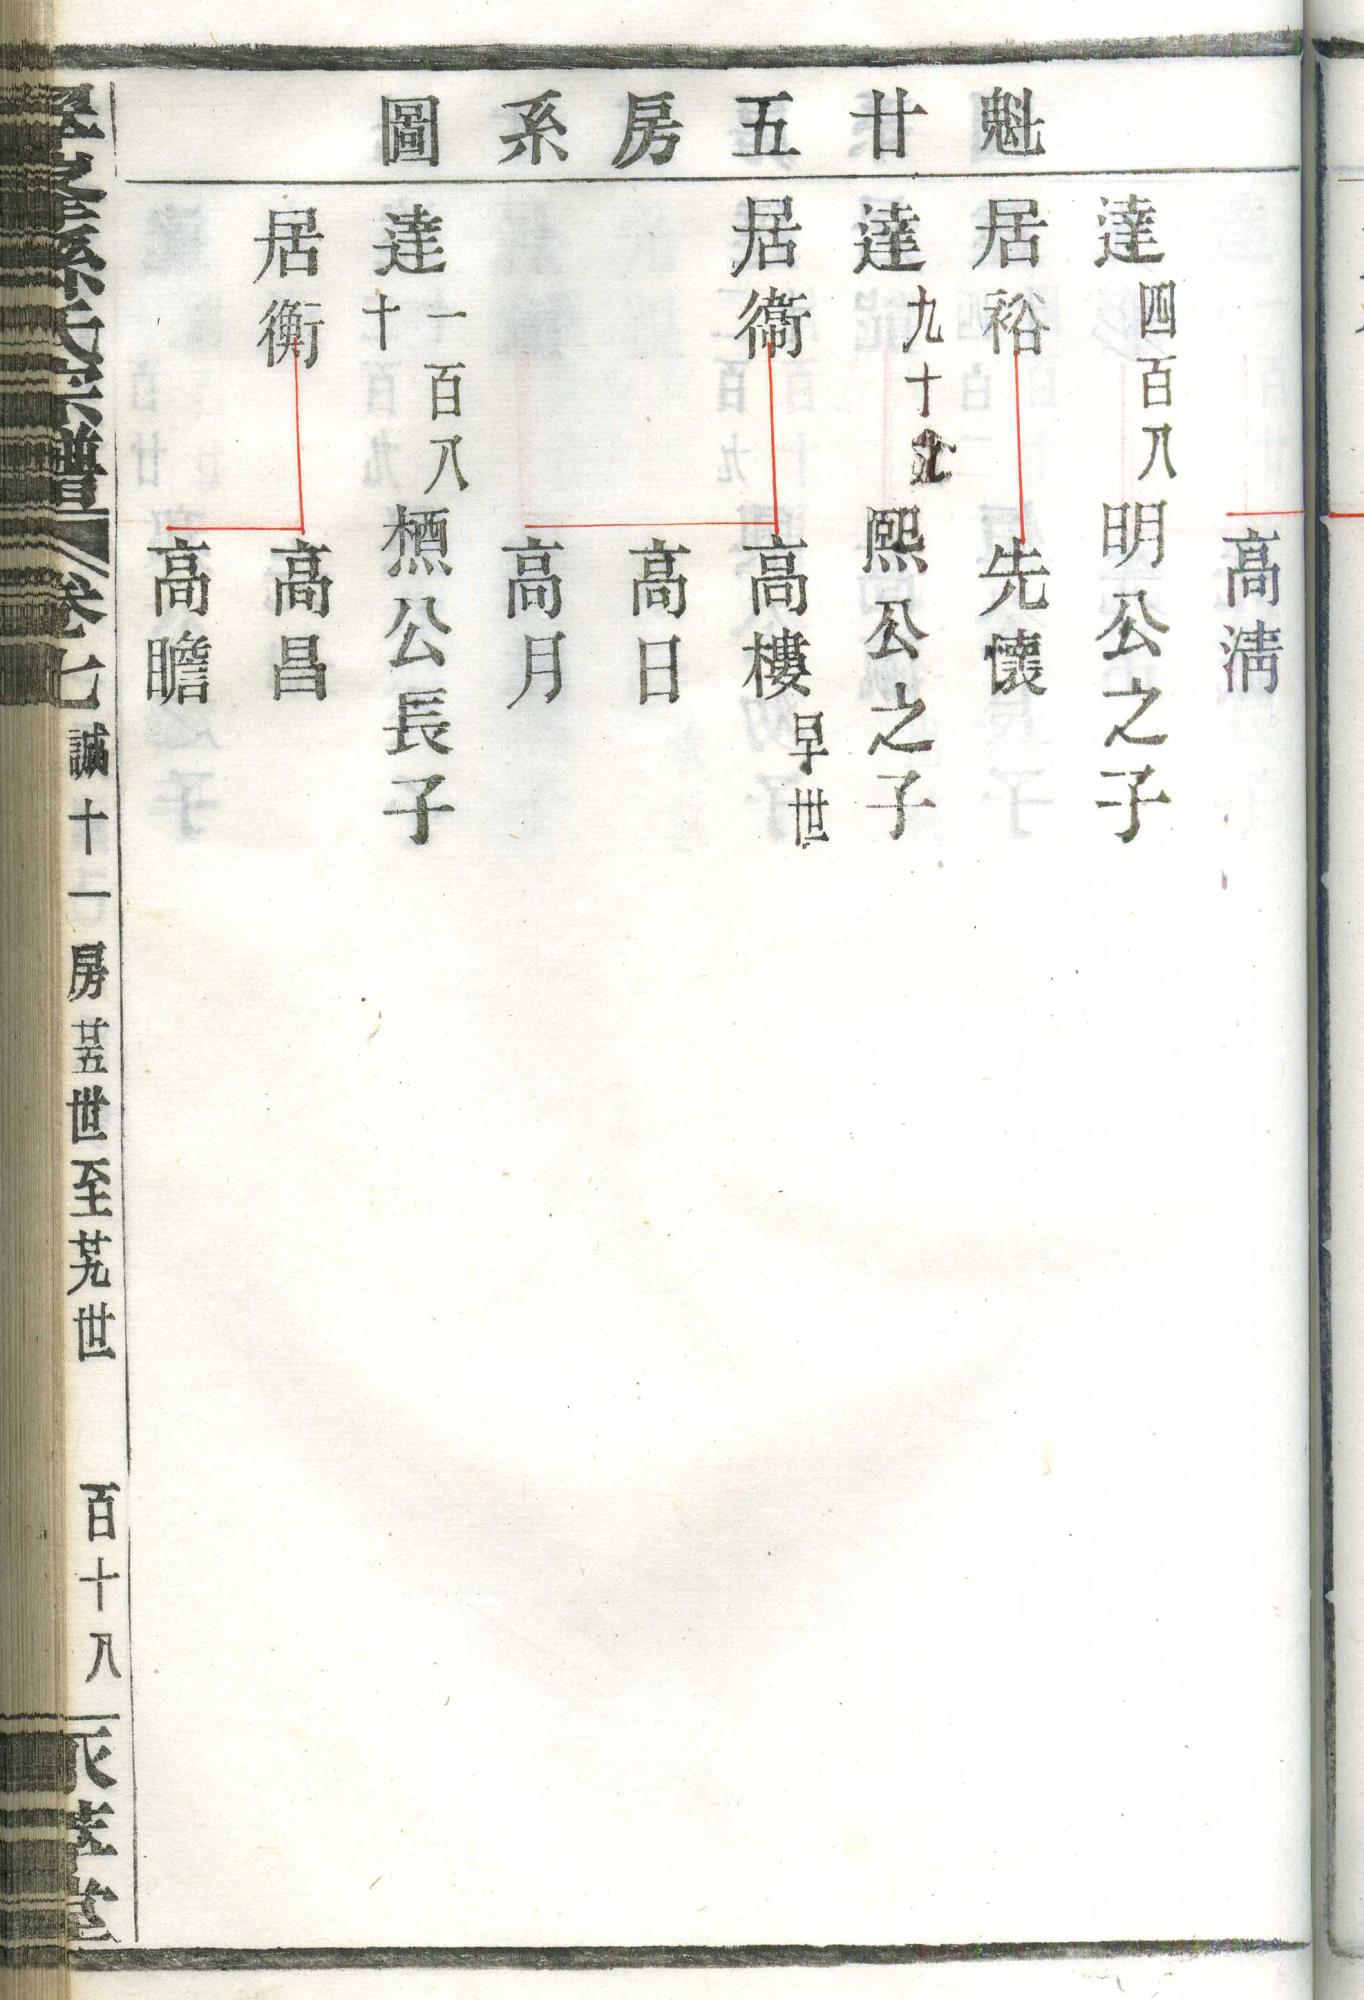 魁廿五房系圖
高淸
達四百八明公之子
居裕
先懷
達九十九熙公之子
居衞
高樓早世
高日
高月
達一百八十槱公長子
居衡
高昌
高瞻
孫氏宗譜
卷七
誠十一房廿五世至廿九世
百十八